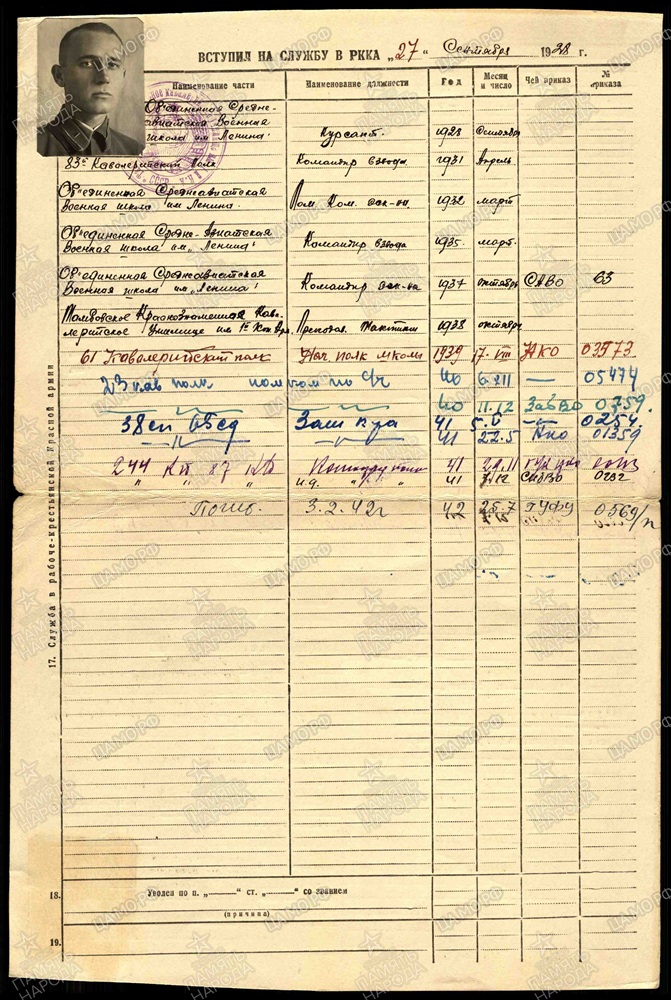 ВСТУПИЛ НА СЛУЖБУ В РККА „27“ Сентября 1928 г.
Наименование части Наименование должности Год Месяц и число Чей приказ № приказа
Об'единенная Средне-
азиатская Военная
школа им Ленина! Курсант. 1928 Сентябрь
83й Кавалерийский полк Командир взвода 1931 Апрель
Об'единенная Среднеазиатская
Военная школа им Ленина. Пом. Ком. эск-на. 1932 март
Об'единенная Средне-Азиатская
Военная школа им „Ленина! Командир взвода 1935. март.
Об'единенная Среднеазиатская
Военная школа им „Ленина! Командир эск-на 1937 октябрь САВО 63
Тамбовское Краснознаменное Кава-
лерийское Училище им 1й Кон Арм. Преподав. Тактики 1938 октябрь
61 Кавалерийский полк Нач. полк школы 1939 17. VIII НКО 03973
23 кав полк пом ком по с/ч 40 6. III — 05474
40 11.12 ЗабВО 0759.
38 сп Зам к-ра 41 5. 0254
41 22.5 НКО 01359
244 кп 87 кд 41
и.д. 41 12 СибВО
Погиб. 3.2.42г 42 25.7 ГУФУ 0569/п
17. Служба в рабоче-крестьянской Красной армии
18. Уволен по п. „——“ ст. „——“ со званием
(причина)
19.
ПАМЯТЬ НАРОДА
ЦАМО.РФ